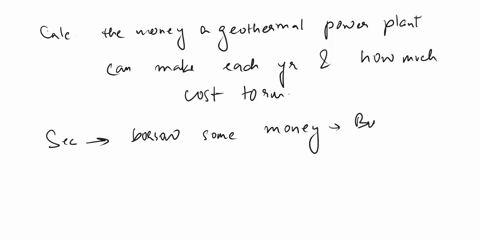 Calc the money a geothermal power plant
can make each yr & how much
cost to run.
Sec → borrow some money → Bu